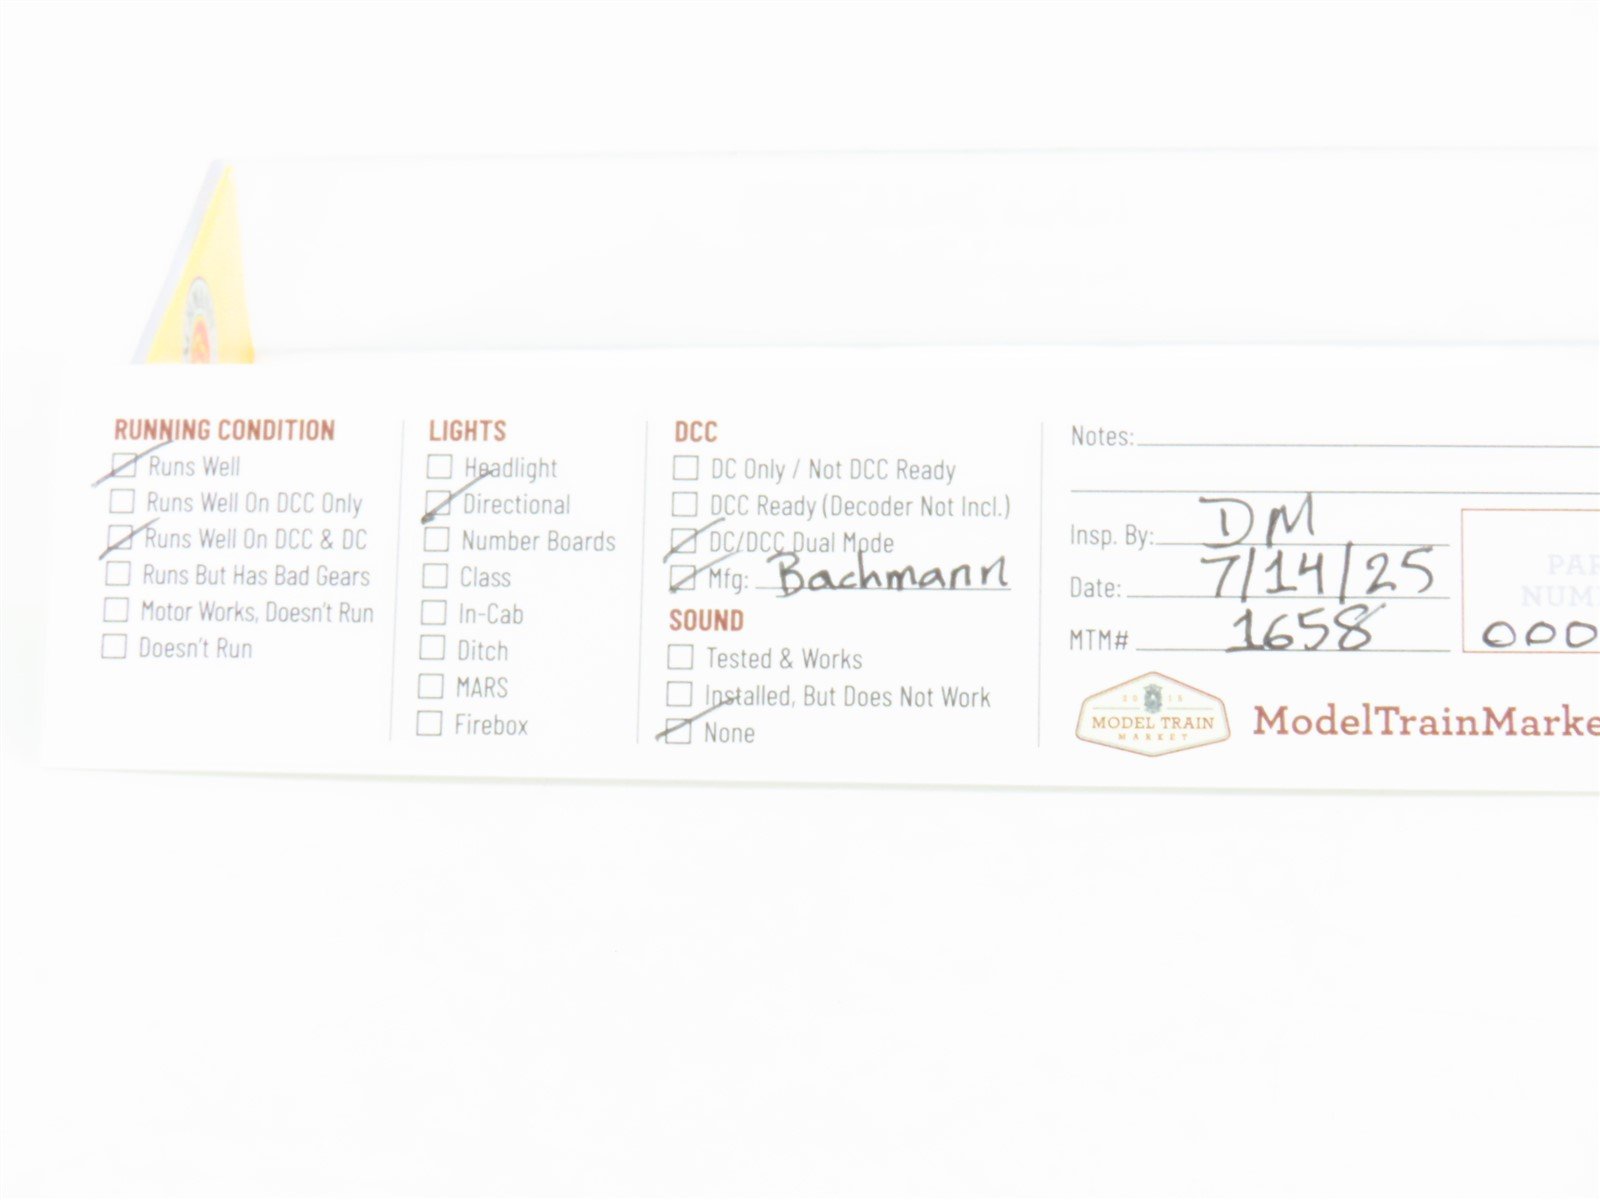 RUNNING CONDITION
Runs Well
Runs Well On DCC Only
Runs Well On DCC & DC
Runs But Has Bad Gears
Motor Works, Doesn't Run
Doesn't Run
LIGHTS
Headlight
Directional
Number Boards
Class
In-Cab
Ditch
MARS
Firebox
DCC
DC Only / Not DCC Ready
DCC Ready (Decoder Not Incl.)
DC/DCC Dual Mode
Mfg: Bachmann
SOUND
Tested & Works
Installed, But Does Not Work
None
Notes:
Insp. By: DM
Date: 7/14/25
MTM# 1658
PAR
NUM
000
2015
MODEL TRAIN
MARKET
ModelTrainMarke